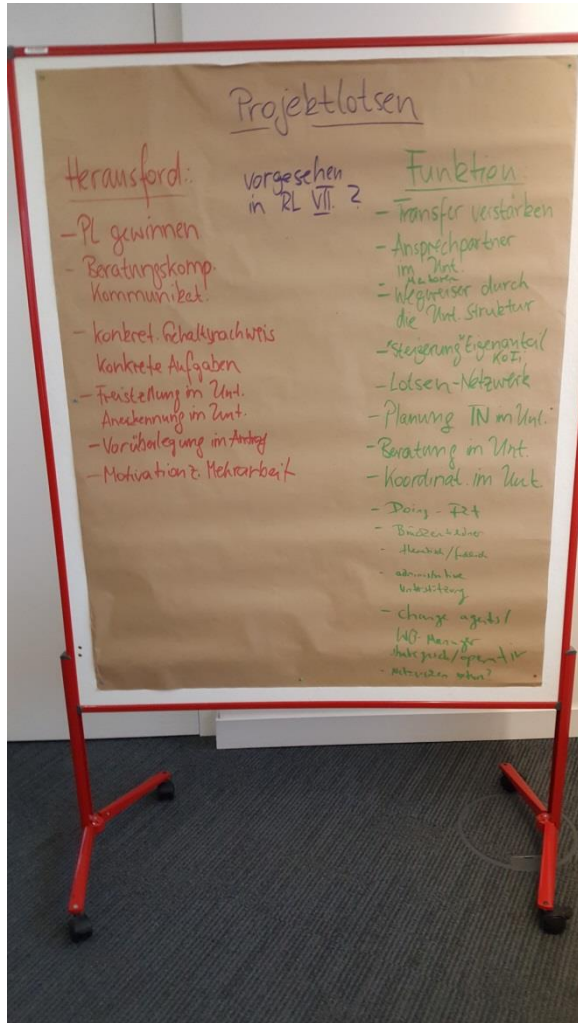 Projektlotsen
Herausford.:
- PL gewinnen
- Beratungskomp.
Kommunikat.
- konkret. Gehaltsnachweis
Konkrete Aufgaben
- Freistellung im Unt.
Anerkennung im Unt.
- Vorüberlegung im Antrag
- Motivation z. Mehrarbeit
vorgesehen
in RL VII. ?
Funktion
- Transfer verstärken
- Ansprechpartner
im Unt.
- Wegweiser durch
die Unt. Struktur
- "Steigerung" Eigenanteil
KoFi
- Lotsen-Netzwerk
- Planung TN im Unt.
- Beratung in Unt.
- Koordinat. im Unt.
- Doing -
-
-
- administrative
Unterstützung
- Change agents /
Manager
strategisch/operativ
-